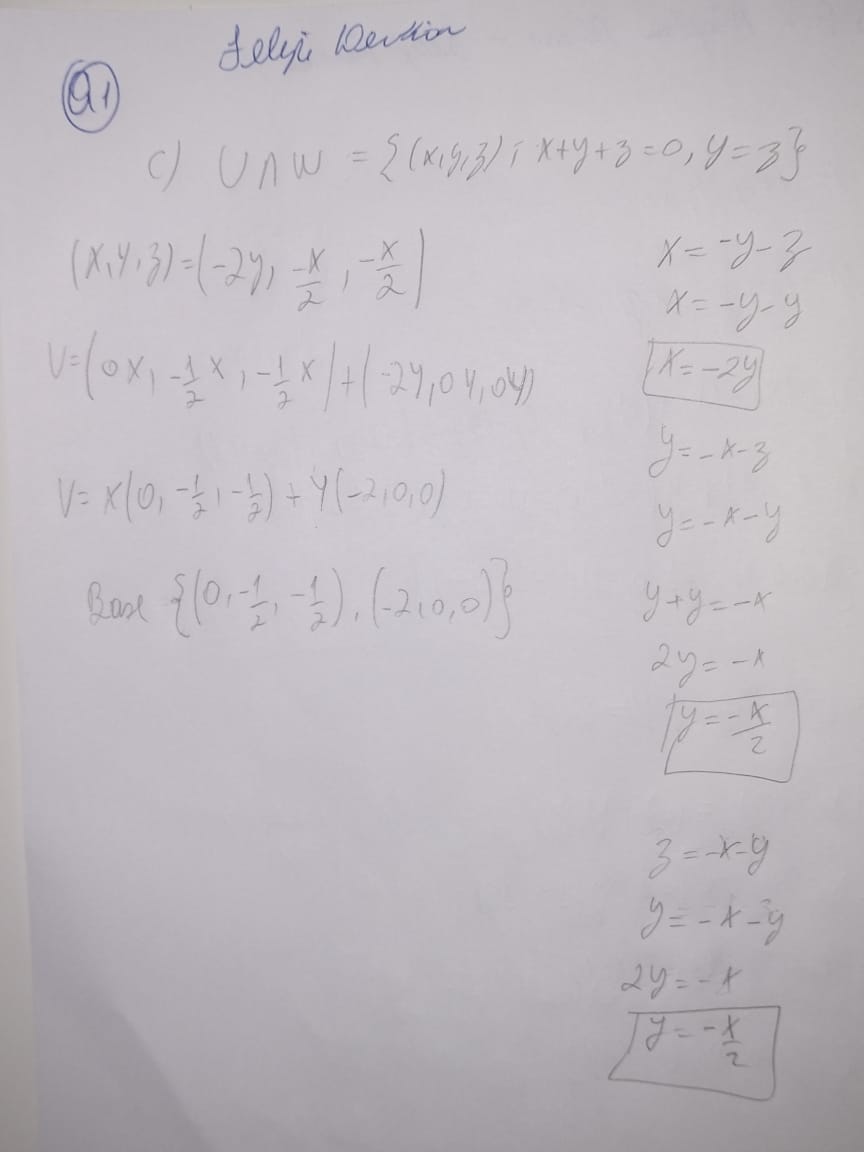 Q1
c) U∩W = {(x,y,z); x+y+z=0, y=z}
(x,y,z)=(-2y, -x/2, -x/2)
V=(0x, -1/2 x, -1/2 x)+(-2y,0y,0y)
V= x(0, -1/2, -1/2) + y(-2,0,0)
Base {(0,-1/2, -1/2), (-2,0,0)}
x= -y-z
x= -y-y
x= -2y
y= -x-z
y= -x-y
y+y=-x
2y= -x
y= -x/2
z = -x-y
y= -x-y
2y= -x
y= -x/2